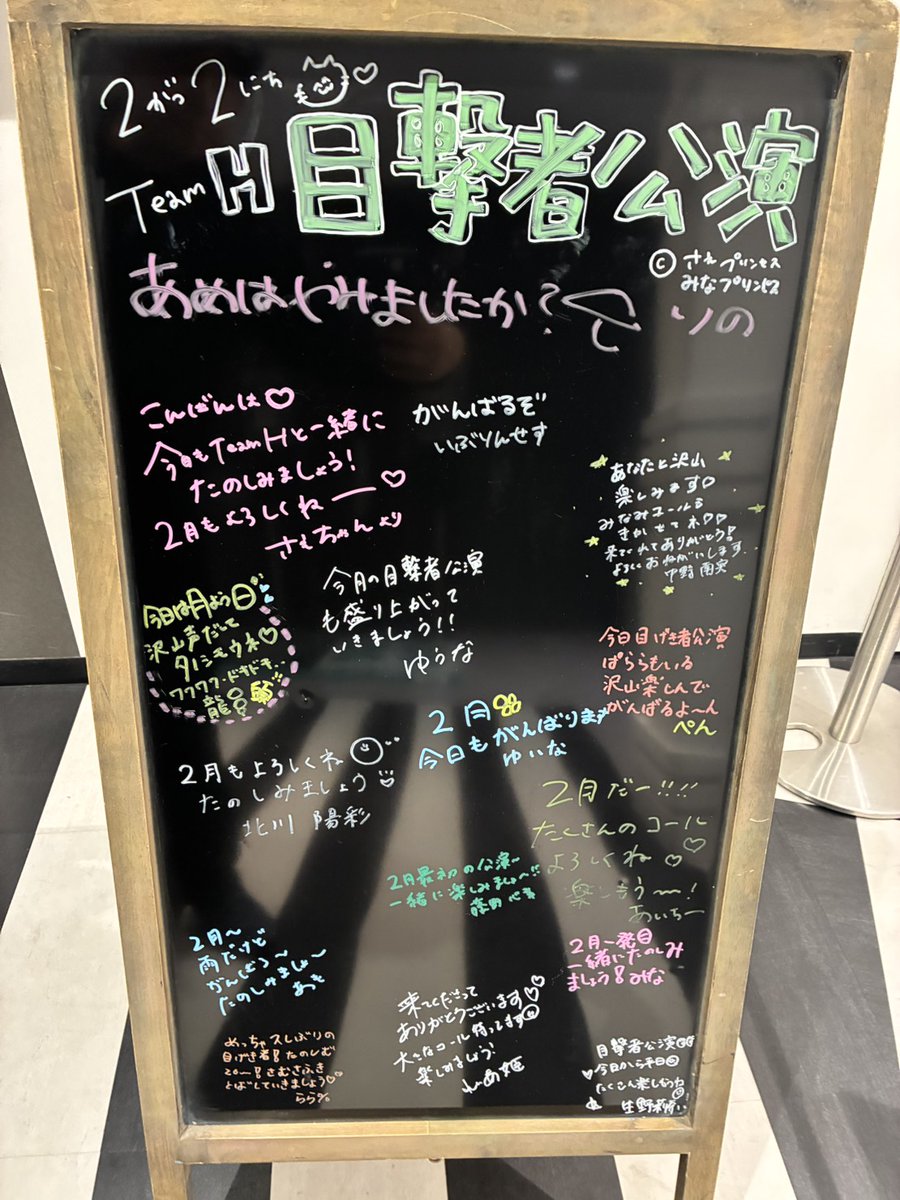 2がつ2にち
Team H 目撃者公演
© さえプリンセス
みなプリンセス
あめはやみましたか? りの
こんばんは♡
今日もTeamHと一緒に
たのしみましょう!
2月もよろしくねー♡
さえちゃんより
がんばるぞ
いぶりんせす
あなたと沢山
楽しみます♡
みなみコールも
きかせてネ♡♡
来てくれてありがとう!
よろしくおねがいします
中野 南実
今月の目撃者公演
も盛り上がって
いきましょう!!
ゆうな
今日は月よう日
沢山声だして
タノシモウネ♡
ワクワク・ドキドキ
龍
今日目げき者公演
ぱららもいる
沢山楽しんで
がんばるよ〜ん
ぺん
2月
今日もがんばります
ゆいな
2月もよろしくね
たのしみましょう
北川 陽彩
2月だー!!!!
たくさんのコール
よろしくね♡♡
楽しもう〜!
あいちー
2月最初の公演
一緒に楽しみましょ〜!!
藤田
2月〜
雨だけど
がんばろ〜
たのしみましょ〜
あも
2月一発目
一緒にたのしみ
ましょう みな
来てくださって
ありがとうございます♡♡
大きなコール待ってます
楽しみましょう
れあ姫
めっちゃスしぶりの
目げき者 たのしむ
ぞ〜 さむさふき
とばしていきましょう♡
らら
目撃者公演
♡今日から平日
たくさん楽しもうね
生野莉奈